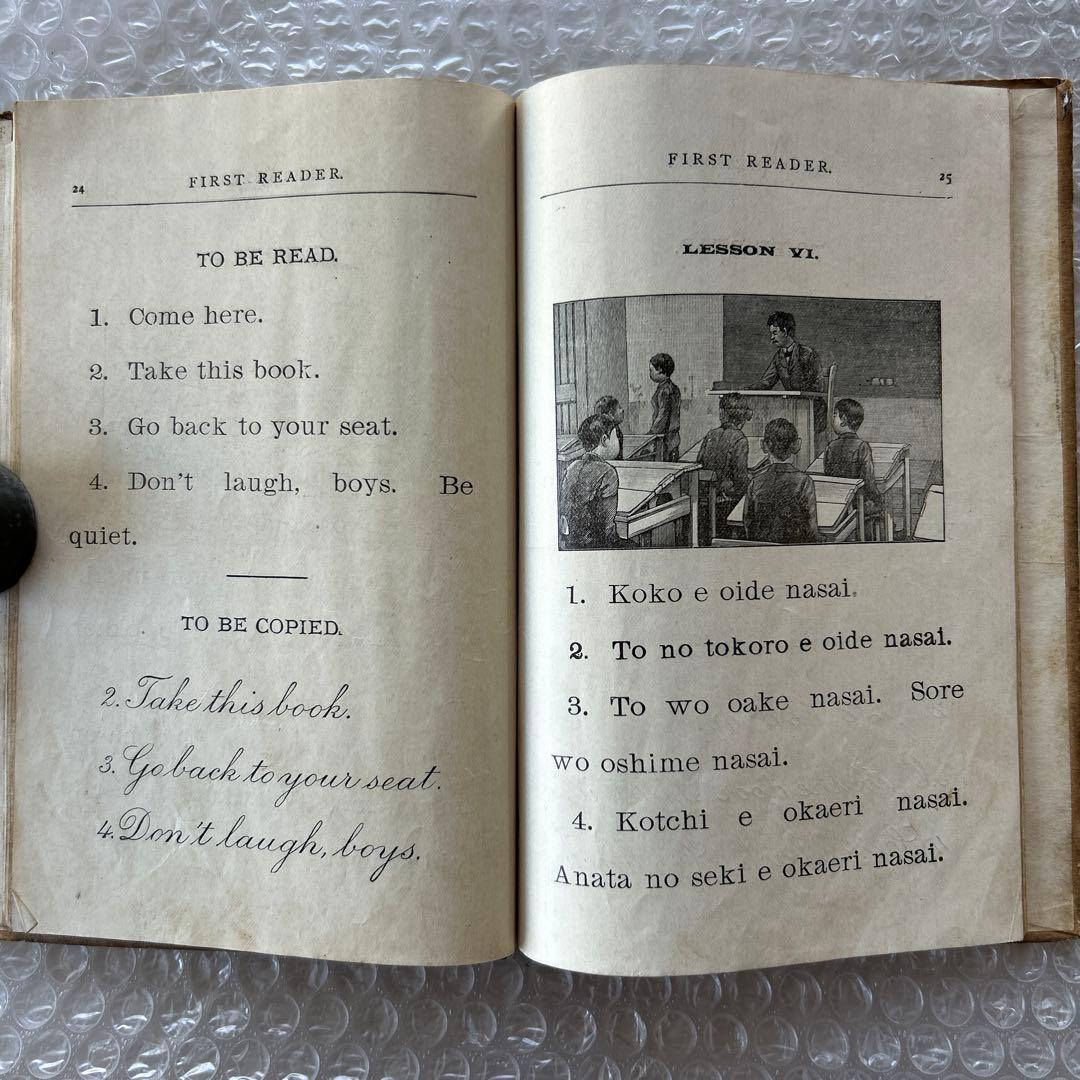 24
FIRST READER.
TO BE READ.
1. Come here.
2. Take this book.
3. Go back to your seat.
4. Don't laugh, boys. Be
quiet.
TO BE COPIED.
2. Take this book.
3. Go back to your seat.
4. Don't laugh, boys.
FIRST READER.
25
LESSON VI.
1. Koko e oide nasai.
2. To no tokoro e oide nasai.
3. To wo oake nasai. Sore
wo oshime nasai.
4. Kotchi e okaeri nasai.
Anata no seki e okaeri nasai.